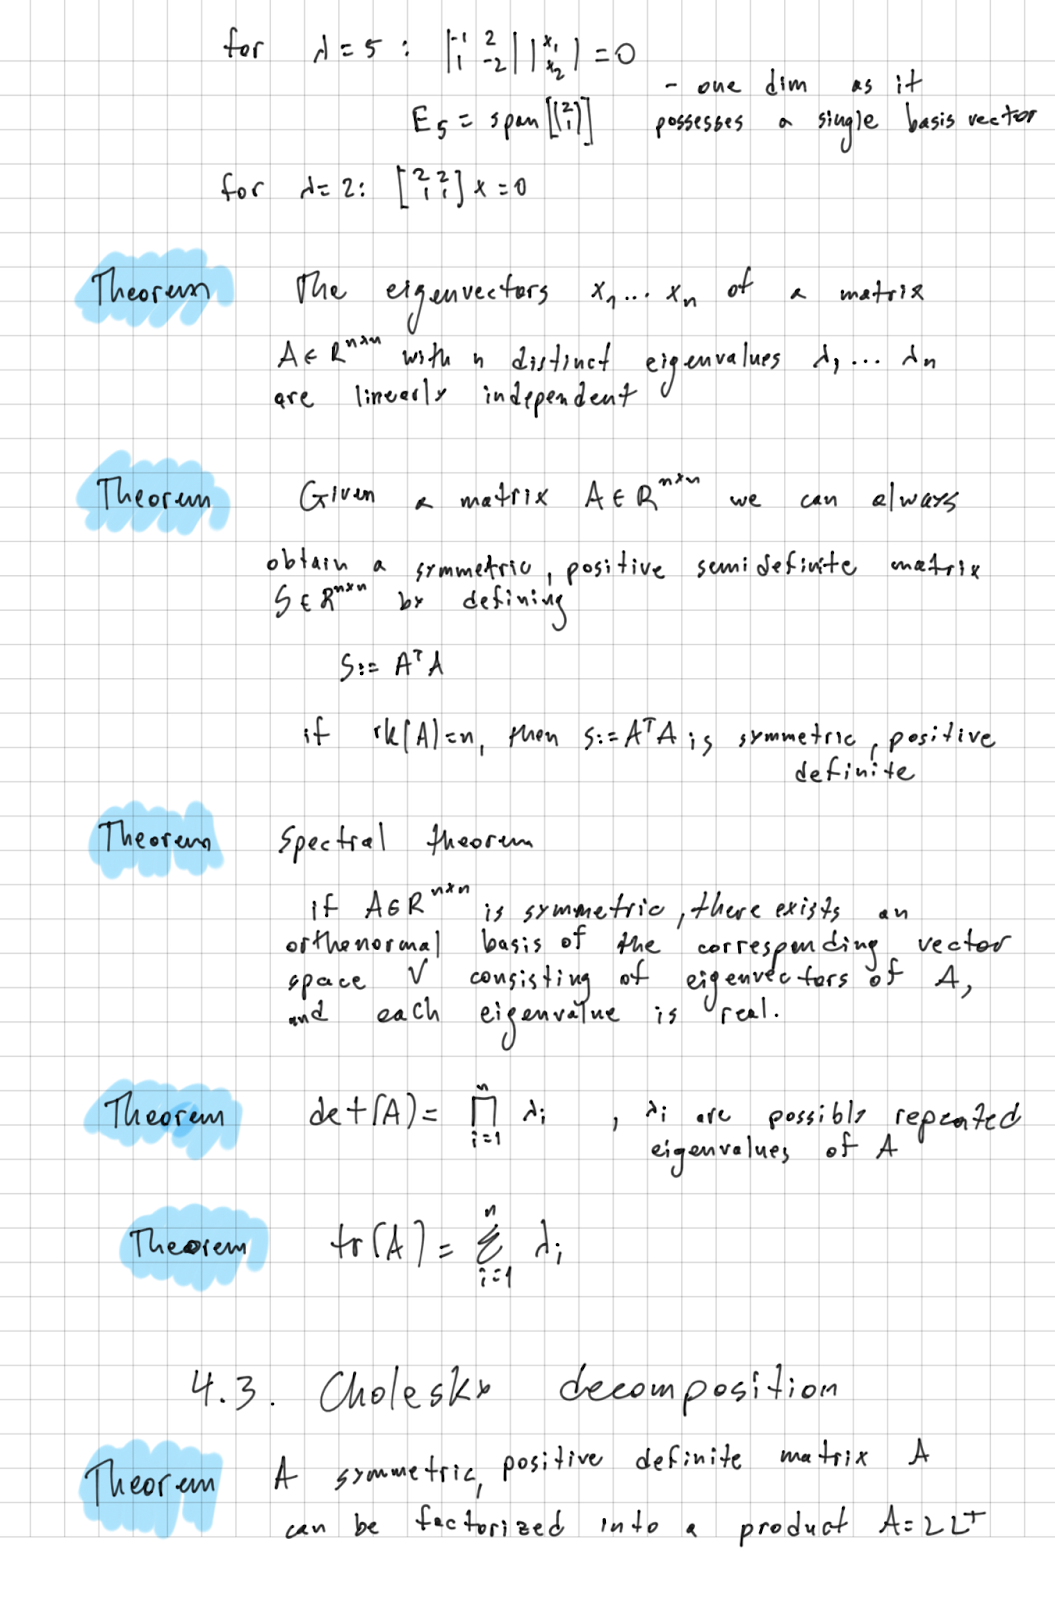 for λ = 5 : |-1 2 1 -2| |x₁ x₂| = 0
- one dim as it
E₅ = span[(2 1)] possesses a single basis vector
for λ = 2: [2 2 1 1] x = 0
Theorem The eigenvectors x₁ ... xₙ of a matrix
A ∈ Rⁿˣⁿ with n distinct eigenvalues λ₁ ... λₙ
are linearly independent
Theorem Given a matrix A ∈ Rⁿˣⁿ we can always
obtain a symmetric, positive semidefinite matrix
S ∈ Rⁿˣⁿ by defining
S := AᵀA
if rk(A) = n, then S := AᵀA is symmetric, positive
definite
Theorem Spectral theorem
if A ∈ Rⁿˣⁿ is symmetric, there exists an
orthonormal basis of the correspending vector
space V consisting of eigenvectors of A,
and each eigenvalue is real.
Theorem det(A) = ∏ⁿᵢ₌₁ λᵢ , λᵢ are possibly repeated
eigenvalues of A
Theorem tr(A) = Σⁿᵢ₌₁ λᵢ
4.3. Cholesky decomposition
Theorem A symmetric, positive definite matrix A
can be factorized into a product A = LLᵀ